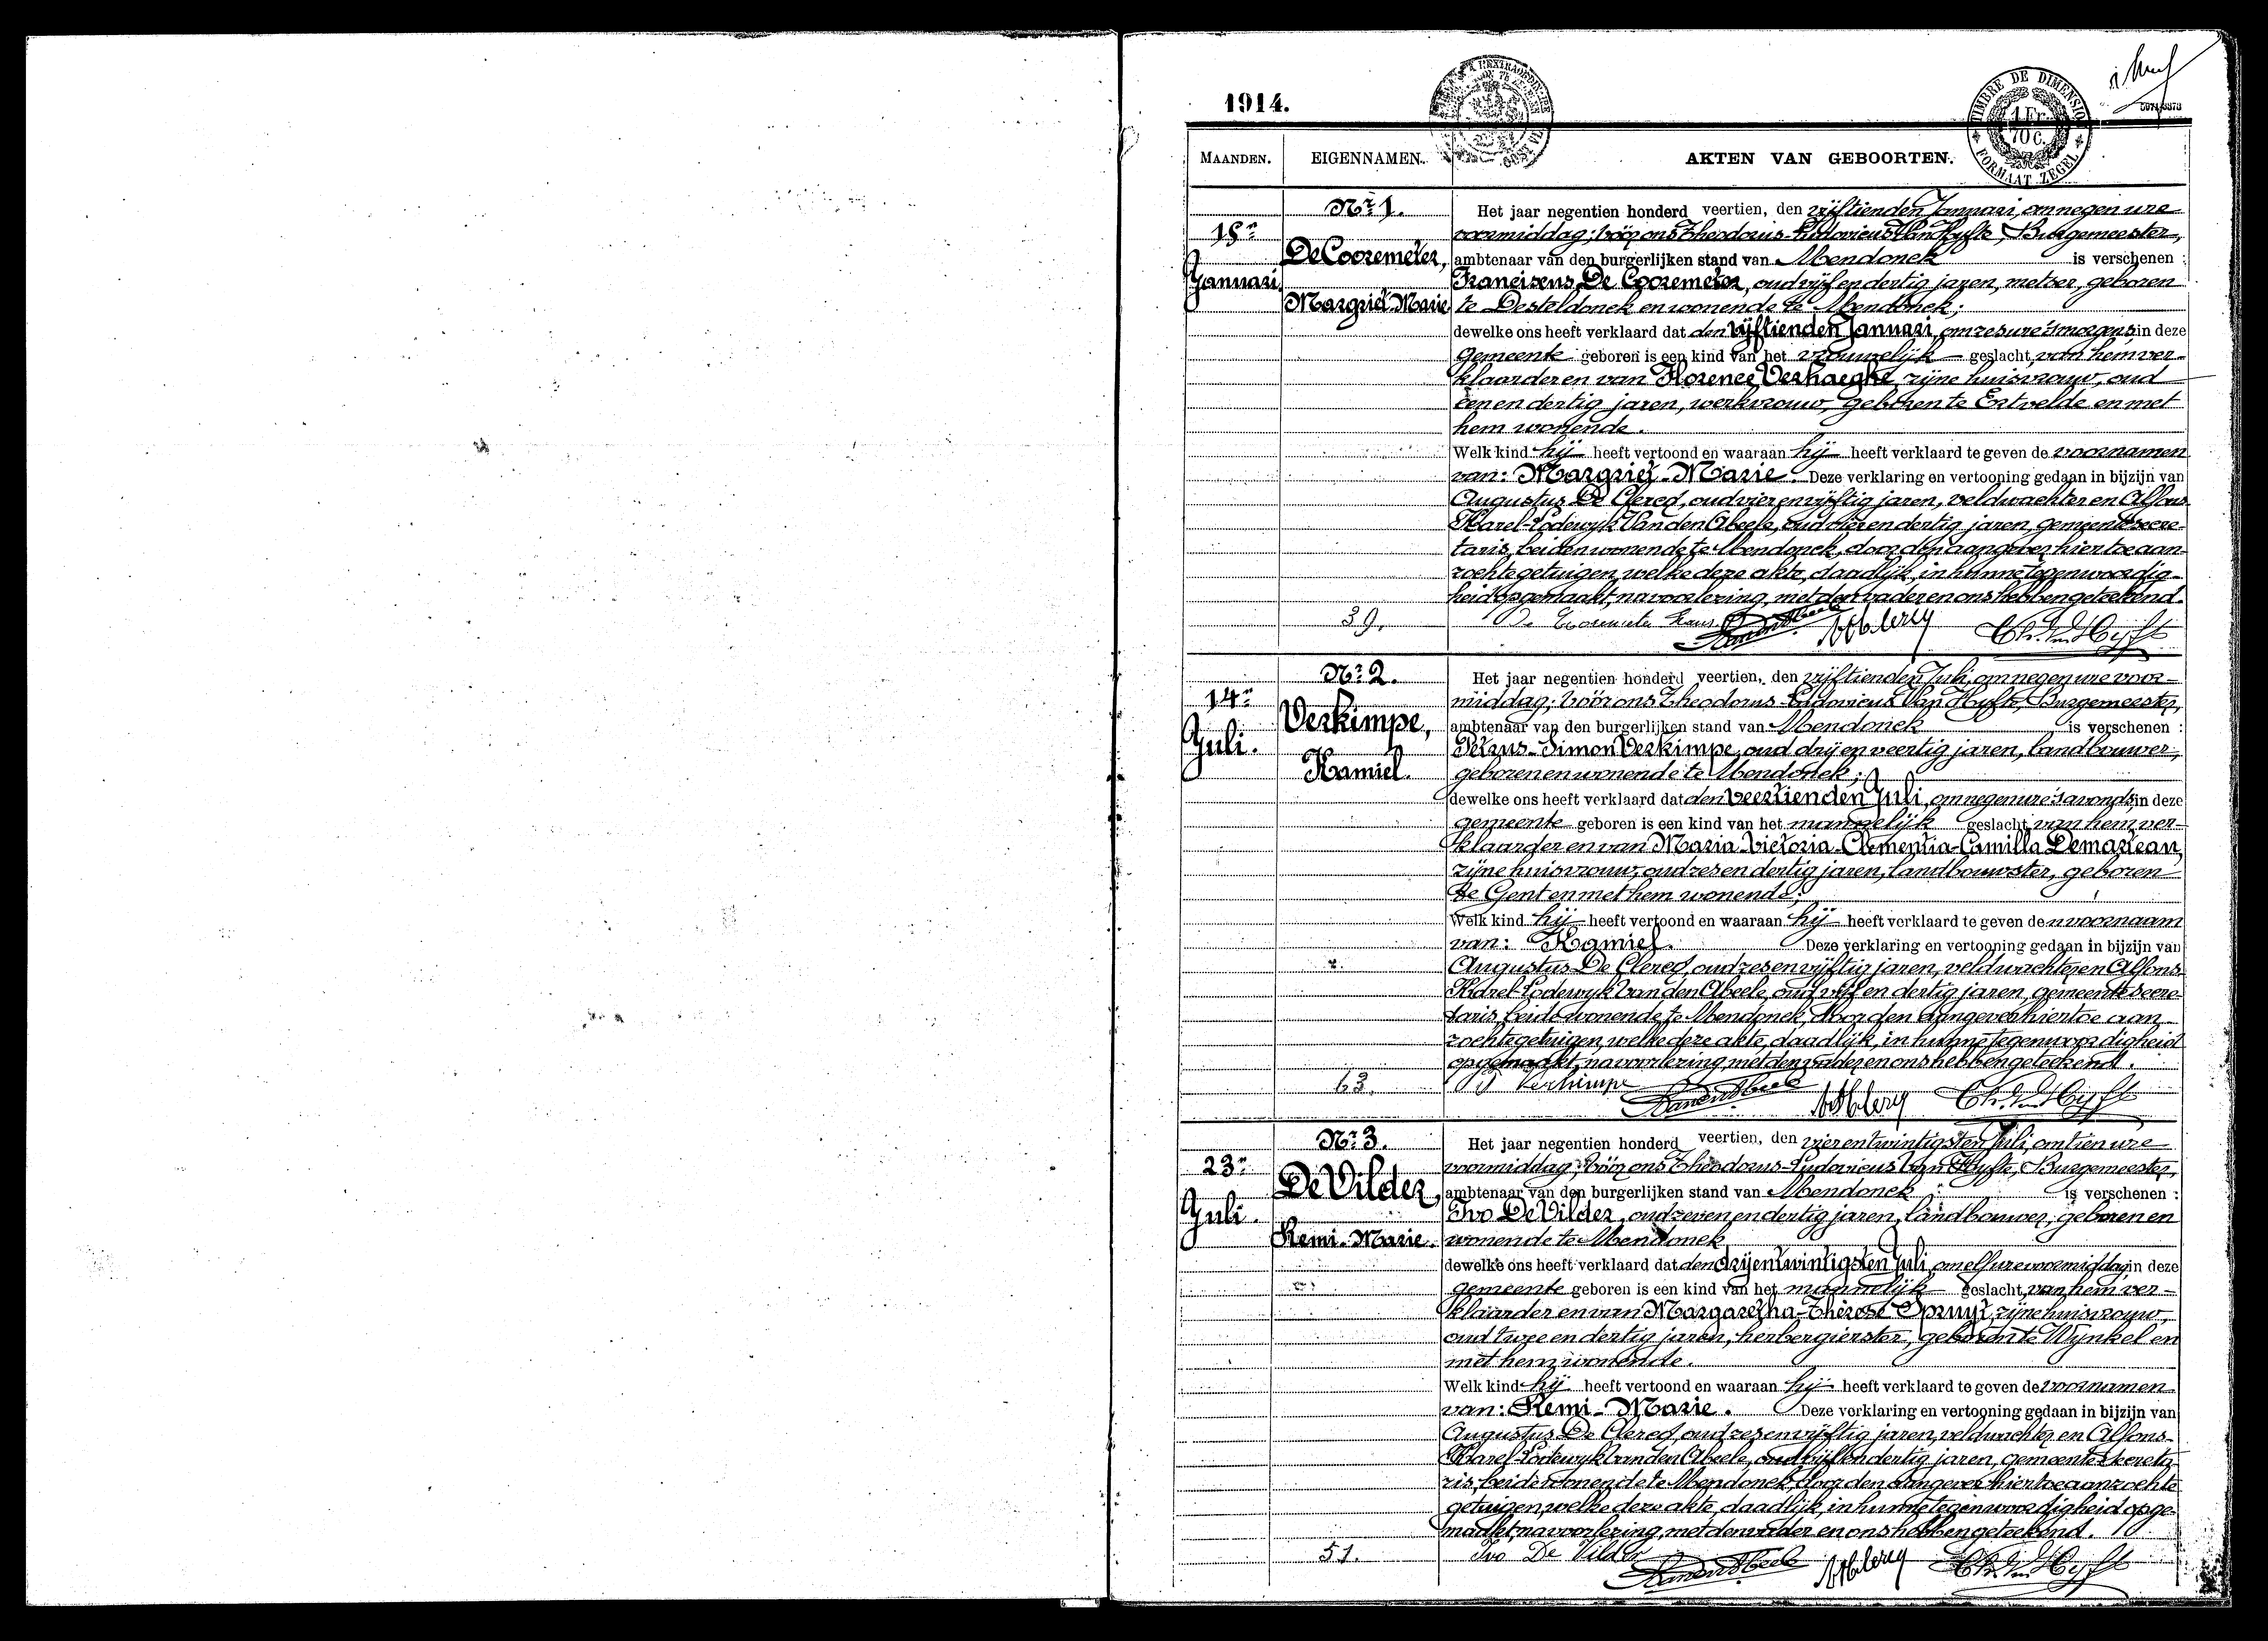 1914.
TIMBRE DE DIMENSION
1 Fr.
70 c.
FORMAAT ZEGEL
MAANDEN.
EIGENNAMEN.
AKTEN VAN GEBOORTEN.
Nr 1.
15n
Januari.
De Cooremeter,
Margriet-Marie
Het jaar negentien honderd veertien, den vijftienden Januari, om negen ure
voormiddag; vóór ons Theodorus-Ludovicus Van Hyfte, Burgemeester,
ambtenaar van den burgerlijken stand van Mendonck is verschenen :
Franciscus De Cooremeter, oud vijf en dertig jaren, metser, geboren
te Desteldonck en wonende te Mendonck;
dewelke ons heeft verklaard dat den vijftienden Januari, om zes ure 's morgens, in deze
gemeente geboren is een kind van het vrouwelijk geslacht, van hem ver-
klaarder en van Florence Verhaeghe, zijne huisvrouw, oud
een en dertig jaren, werkvrouw, geboren te Ertvelde en met
hem wonende.
Welk kind hij heeft vertoond en waaraan hij heeft verklaard te geven de voornamen
van: Margriet-Marie. Deze verklaring en vertooning gedaan in bijzijn van
Augustus De Clercq, oud vier en vijftig jaren, veldwachter en Alfons
Karel-Lodewyk Van den Abeele, oud vier en dertig jaren, gemeentesecre-
taris, beiden wonende te Mendonck, door den aangever hiertoe aan-
zochte getuigen, welke deze akte, daadlijk, in hunne tegenwoordig-
heid opgemaakt, na voorlezing, met den vader en ons hebben geteekend.
39.
De Cooremeter Frans
Th. Van Hyfte
Nr 2.
14n
Juli.
Verkimpe,
Kamiel.
Het jaar negentien honderd veertien, den vijftienden Juli, om negen ure voor-
middag; vóór ons Theodorus-Ludovicus Van Hyfte, Burgemeester,
ambtenaar van den burgerlijken stand van Mendonck is verschenen :
Petrus-Simon Verkimpe, oud drij en veertig jaren, landbouwer,
geboren en wonende te Mendonck;
dewelke ons heeft verklaard dat den veertienden Juli, om negen ure 's avonds, in deze
gemeente geboren is een kind van het mannelijk geslacht, van hem ver-
klaarder en van Maria-Victoria-Clementia-Camilla Demartean,
zijne huisvrouw, oud zes en dertig jaren, landbouwster, geboren
te Gent en met hem wonende;
Welk kind hij heeft vertoond en waaraan hij heeft verklaard te geven den voornaam
van: Kamiel. Deze verklaring en vertooning gedaan in bijzijn van
Augustus De Clercq, oud zes en vijftig jaren, veldwachter en Alfons-
Karel-Lodewyk Van den Abeele, oud vijf en dertig jaren, gemeentesecre-
taris, beide wonende te Mendonck, door den aangever hiertoe aan
zochte getuigen, welke deze akte, daadlijk, in hunne tegenwoordigheid
opgemaakt, na voorlezing, met den vader en ons hebben geteekend.
63.
P Verkimpe
Th. Van Hyfte
Nr 3.
23n
Juli.
De Vilder,
Remi-Marie.
Het jaar negentien honderd veertien, den vier en twintigsten Juli, om tien ure
voormiddag; vóór ons Theodorus-Ludovicus Van Hyfte, Burgemeester,
ambtenaar van den burgerlijken stand van Mendonck is verschenen :
Ivo De Vilder, oud zeven en dertig jaren, landbouwer, geboren en
wonende te Mendonck
dewelke ons heeft verklaard dat den drijentwintigsten Juli, om elf ure voormiddag, in deze
gemeente geboren is een kind van het mannelijk geslacht, van hem ver-
klaarder en van Margaretha-Thérèse Spruyt, zijne huisvrouw,
oud twee en dertig jaren, herbergierster, geboren te Wynkel en
met hem wonende.
Welk kind hij heeft vertoond en waaraan hij heeft verklaard te geven de voornamen
van: Remi-Marie. Deze verklaring en vertooning gedaan in bijzijn van
Augustus De Clercq, oud zes en vijftig jaren, veldwachter en Alfons-
Karel-Lodewyk Van den Abeele, oud vijf en dertig jaren, gemeentesecreta
ris, beide wonende te Mendonck, door den aangever hiertoe aanzochte
getuigen, welke deze akte, daadlijk, in hunne tegenwoordigheid opge-
maakt, na voorlezing, met den vader en ons hebben geteekend.
51.
Ivo De Vilder
Th. Van Hyfte